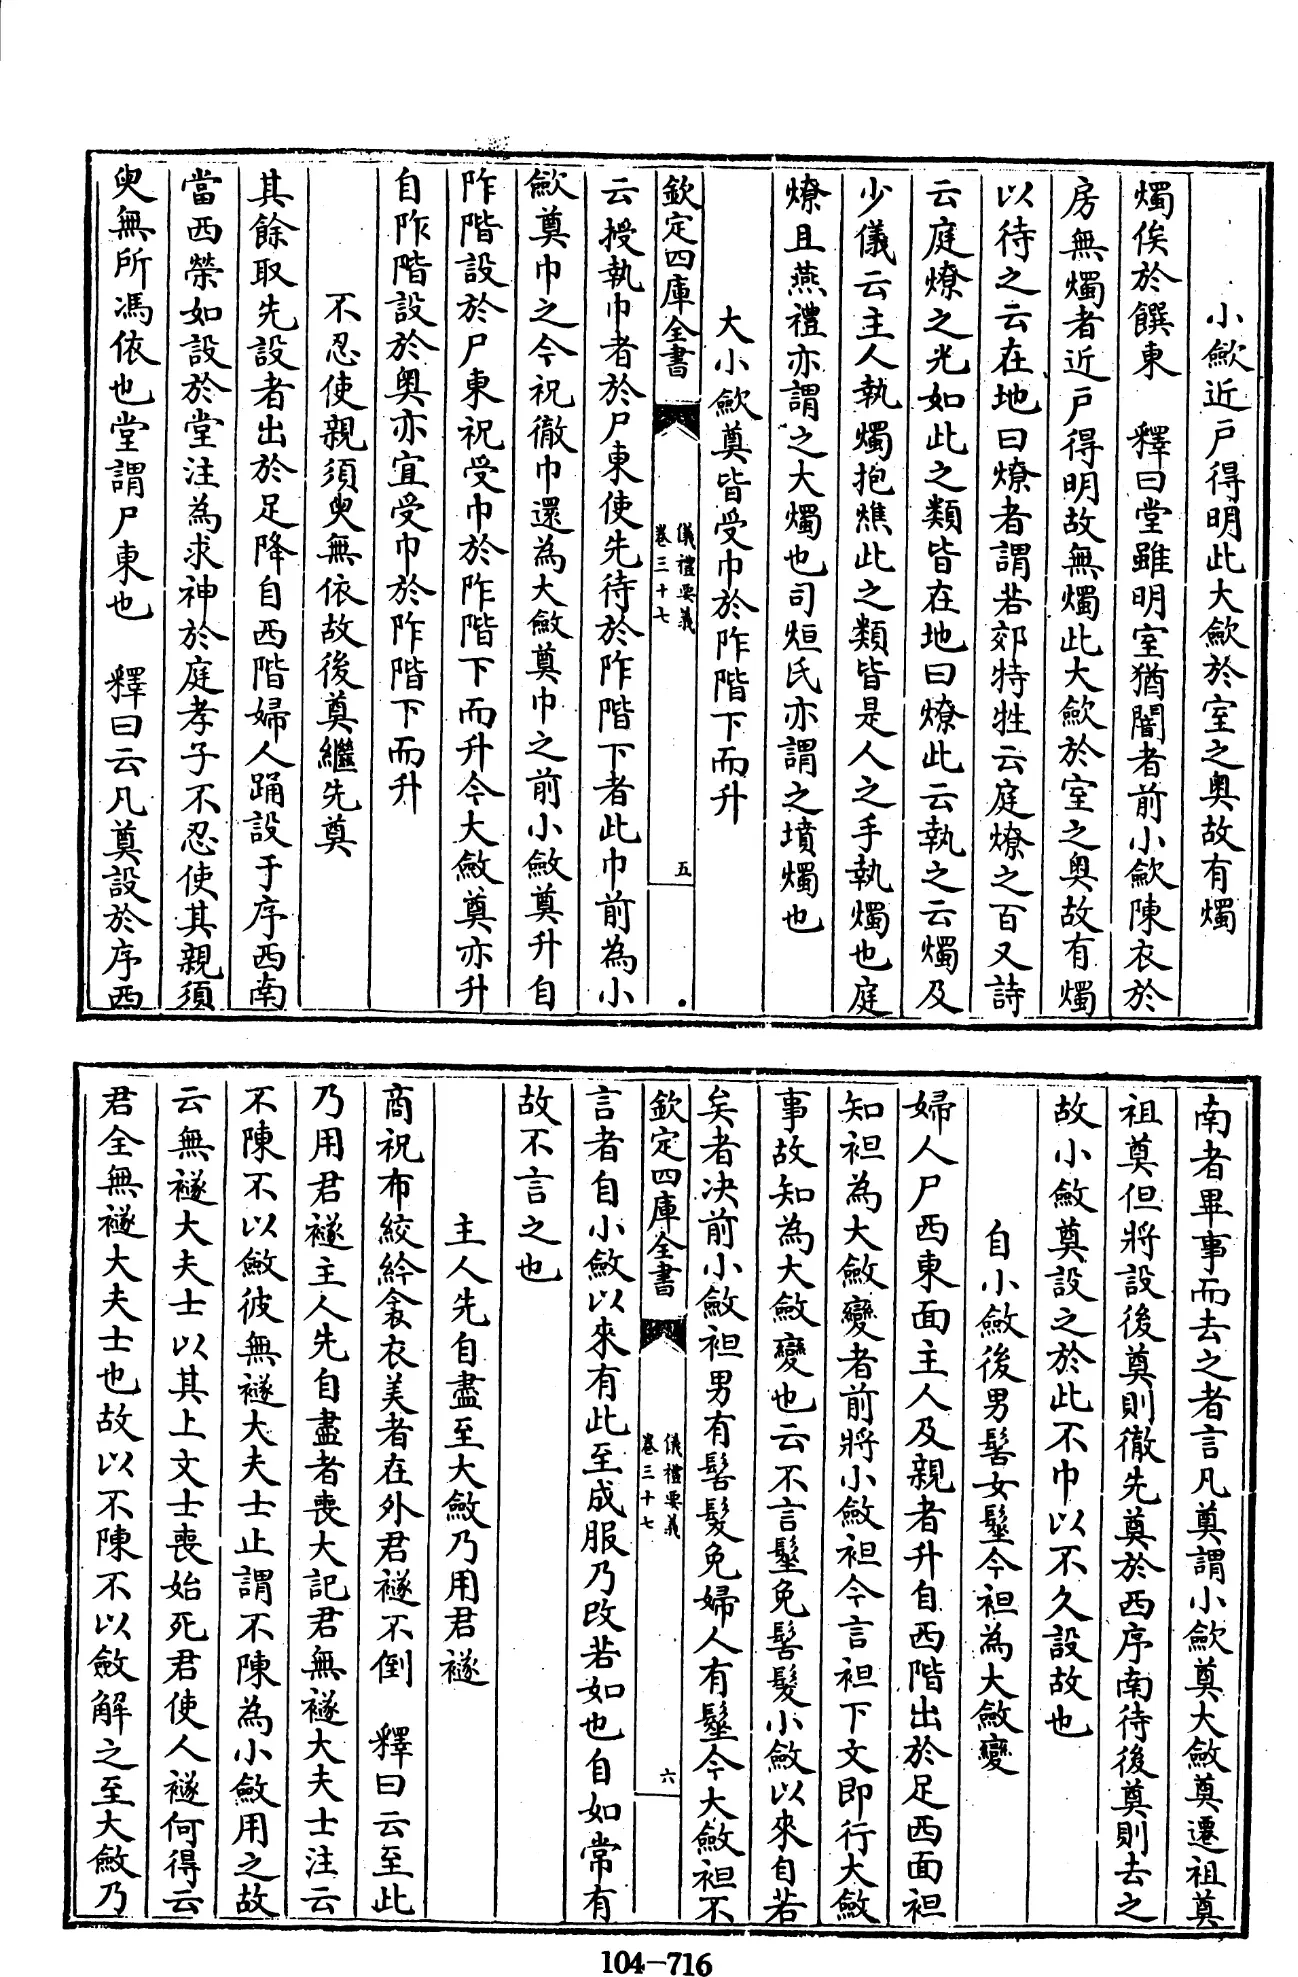 小歛近戸得明此大歛於室之奥故有燭
燭俟於饌東　釋曰堂雖明室猶闇者前小歛陳衣於
房無燭者近戸得明故無燭此大歛於室之奥故有燭
以待之云在地曰燎者謂若郊特牲云庭燎之百又詩
云庭燎之光如此之類皆在地曰燎此云執之云燭及
少儀云主人執燭抱燋此之類皆是人之手執燭也庭
燎且燕禮亦謂之大燭也司烜氏亦謂之墳燭也
大小歛奠皆受巾於阼階下而升
欽定四庫全書
儀禮要義
卷三十七
五
云授執巾者於尸東使先待於阼階下者此巾前為小
歛奠巾之今祝徹巾還為大斂奠巾之前小斂奠升自
阼階設於尸東祝受巾於阼階下而升今大斂奠亦升
自阼階設於奥亦宜受巾於阼階下而升
不忍使親須臾無依故後奠繼先奠
其餘取先設者出於足降自西階婦人踊設于序西南
當西榮如設於堂注為求神於庭孝子不忍使其親須
臾無所馮依也堂謂尸東也　釋曰云凡奠設於序西
南者畢事而去之者言凡奠謂小歛奠大斂奠遷祖奠
祖奠但將設後奠則徹先奠於西序南待後奠則去之
故小斂奠設之於此不巾以不久設故也
自小斂後男髻女髽今袒為大斂變
婦人尸西東面主人及親者升自西階出於足西面袒
知袒為大斂變者前將小斂袒今言袒下文即行大斂
事故知為大斂變也云不言髽免髻髮小斂以來自若
矣者决前小斂袒男有髻髮免婦人有髽今大斂袒不
欽定四庫全書
儀禮要義
卷三十七
六
言者自小斂以來有此至成服乃改若如也自如常有
故不言之也
主人先自盡至大斂乃用君襚
商祝布絞紟衾衣美者在外君襚不倒　釋曰云至此
乃用君襚主人先自盡者喪大記君無襚大夫士注云
不陳不以斂彼無襚大夫士止謂不陳為小斂用之故
云無襚大夫士以其上文士喪始死君使人襚何得云
君全無襚大夫士也故以不陳不以斂解之至大斂乃
104-716